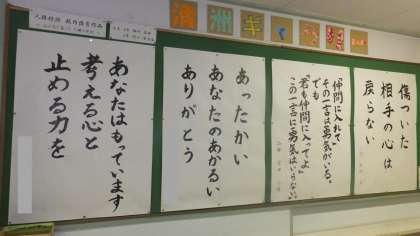 傷ついた
相手の心は
戻らない
「仲間に入れて」
その一言は勇気がいる。
でも
「君も仲間に入ってよ」
この一言に勇気はいらない
あったかい
あなたのあかるい
ありがとう
あなたはもっています
考える心と
止める力を